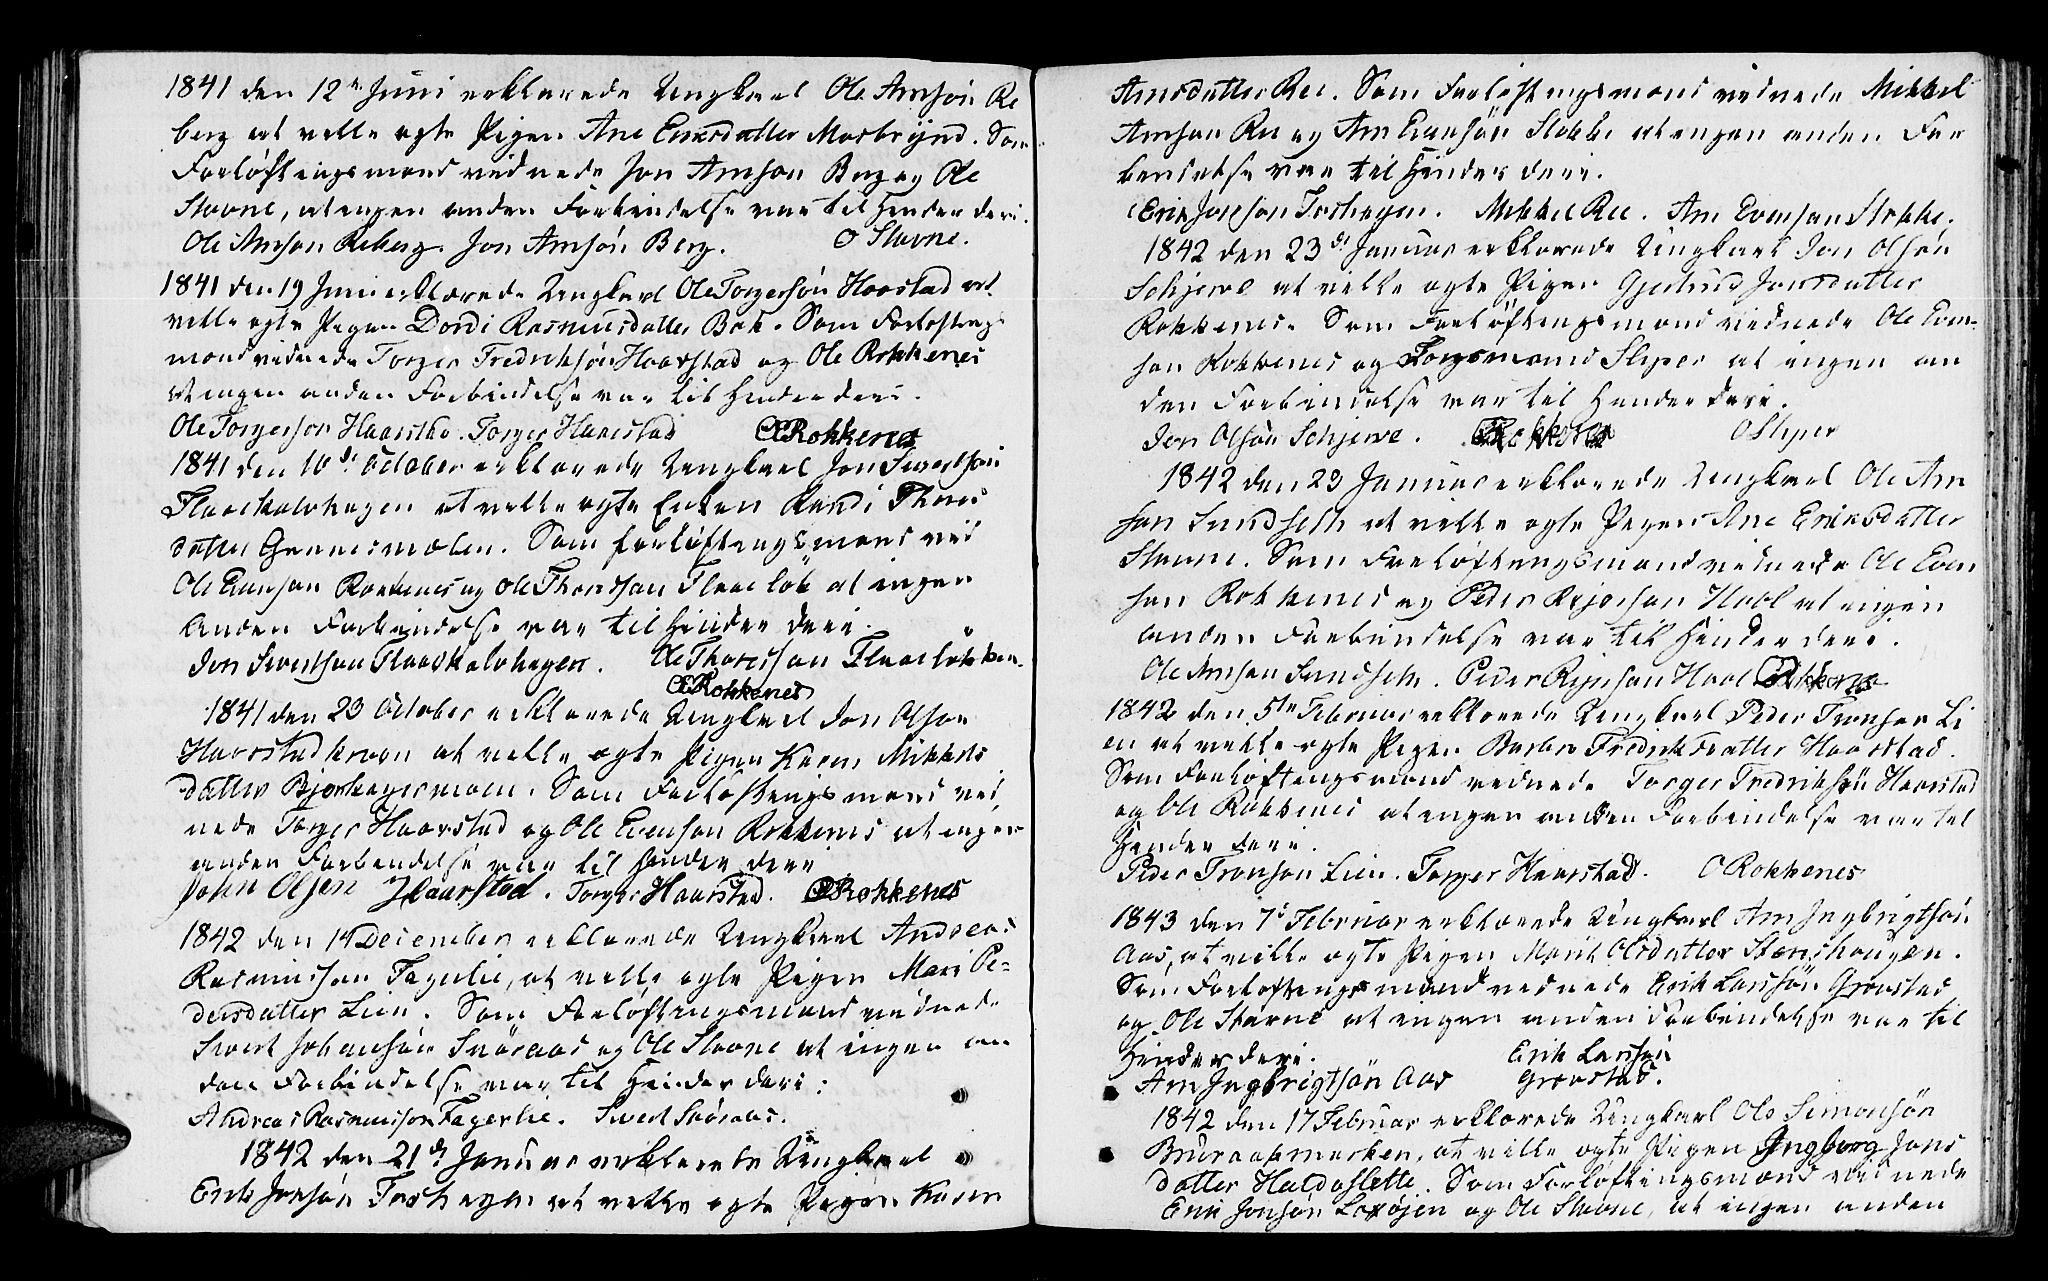 1841 den 12te Juni erklærede Ungkarl Ole Arnsön Re
berg at ville egte Pigen Ane Eriksdatter Mosbrynd. Som
Forlöftningsmænd vidnede Jon Arnson Berg og Ole
Stavne, at ingen anden Forbindelse var til Hinder deri.
Ole Arnson Reberg. Jon Arnsön Berg. O Stavne.
1841 den 19 Juni erklærede Ungkarl Ole Torgersön Haarstad at
ville egte Pigen Dordi Rasmusdatter Bak. Som Forloftnigs
mænd vidnede Torger Fredriksön Haarstad og Ole Rokkenes
at ingen anden Forbindelse var til Hinder deri.
Ole Torgerson Haarstad. Torger Haarstad OERokkenes
1841 den 10de October erklærede Ungkarl Jon Sivertson
Flaaekalvhagen at ville egte Enken Randi Thores
datter Gennesmælen. Som forlöftningsmænd vid
Ole Evenson Rokkenes og Ole Thoresson Flaaelök at ingen
anden Forbindelse var til Hinder deri.
Jon Sivertson Flaaekalvhagen. Ole Thoresson Flaaelökken
OERokkenes
1841 den 23 October erklærede Ungkarl Jon Olson
Haarstadkroen at ville egte Pigen Karen Mikkels
datter Bjerkagermoen. Som Forlöftnings mænd vid
nede Torger Haarstad og Ole Evenson Rokkenes at ingen
anden Forbendelse var til Hinder deri
John Olsen Haarstad. Torger Haarstad. OERokkenes
1842 den 14 December erklærede Ungkarl Andreas
Rasmusson Fagerlie, at ville egte Pigen Mari Pe-
dersdatter Lien. Som Forlöftningsmænd vidnede
Sivert Johansön Snöraas og Ole Stavne at ingen an
den Forbindelse var til Hinder deri:
Andreas Rasmusson Fagerlie. Sivert Snöraas.
1842 den 21de Januar erklærede Ungkarl
Erik Jonsön Torshagen at ville egte Pigen Karen
Arnsdatter Ree. Som Forlöftningsmænd vidnede Mikkel
Arnson Ree og Arn Evensön Stokke at ingen anden For
bendelse var til Hinder deri.
Erik Jonsson Torshagen. Mikkel Ree. Arn Evenson Stokke.
1842 den 23de Januar erklærede Ungkarl Jon Olson
Schjerve at ville egte Pigen Gjertrud Jonsdatter
Rokkenes. Som Forlöftningsmænd vidnede Ole Even-
son Rokkenes og Slyper at ingen an
den Forbindelse var til Hinder deri.
Jon Olsön Schjerve. OERokkenes OSlyper
1842 den 23 Januar erklærede Ungkarl Ole Arn
son Sundseth at ville egte Pigen Ane Eriksdatter
Stavne. Som Forlöftningsmænd vidnede Ole Even
son Rokkenes og Peder Hool at ingen
anden Forbindelse var til Hinder deri.
Ole Arnson Sundseth. Peder Hool OERokkenes
1842 den 5te Februar erklærede Ungkarl Peder Tronson Li
en at ville egte Pigen Barbro Fredriksdatter Haarstad.
Som Forlöftningsmænd vidnede Torger Fredriksön Haarstad
og Ole Rokkenes at ingen anden Forbindelse var til
Hinder deri.
Peder Tronson Lien. Torger Haarstad. O Rokkenes
1843 den 7de Februar erklærede Ungkarl Arn Ingbrigtsön
Aas, at ville egte Pigen Marit Olsdatter Stenshaugen.
Som Forloftningsmænd vidnede Erik Larsön Grovstad
og Ole Stavne at ingen anden Forbindelse var til
Hinder deri. Erik Larsön
Arn Ingbrigtsön Aas Grovstad.
1842 den 17 Februar erklærede Ungkarl Ole Simonsön
Buraasmarken, at ville egte Pigen Ingborg Jons
datter Haldoslette. Som Forlöftningsmænd vidnede
Erik Jonsön Loxöjen og Ole Stavne, at ingen anden